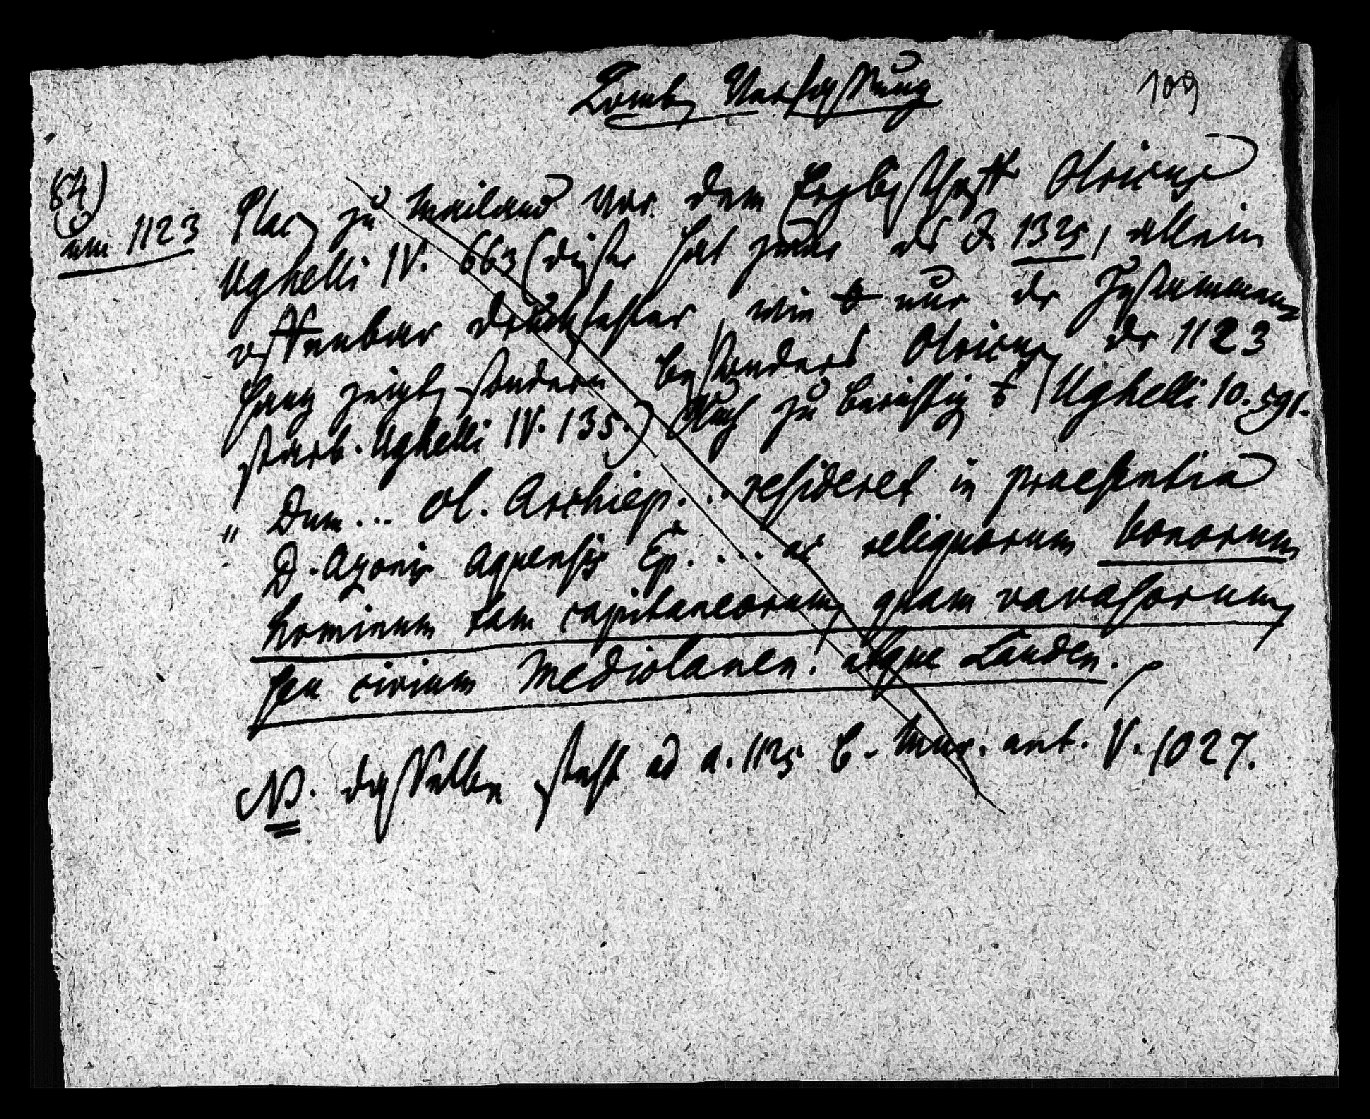 Lomb. Verfassung
109
64)
um 1123
Plac. zu Mailand vor dem Erzbischoff Olricus
Ughelli IV. 663 (dieser hat zwar als J. 1325, allein
offenbar Druckfehler, wie nur der Zusammen
hang zeigt, sondern besonders Olricus der 1123
starb. Ughelli IV. 135.) Auch zu Ughelli 10. 591.
" Dum... Ol. Archiep... resideret in praesentia
D. Azonis Aquensis Ep. .... ac reliquorum bonorum
hominum tam capitaneorum, quam vavassorum,
seu civium Mediolanen. atque Lauden.
NB. dasselbe steht ad a. 1125 b. Mur. ant. V. 1027.